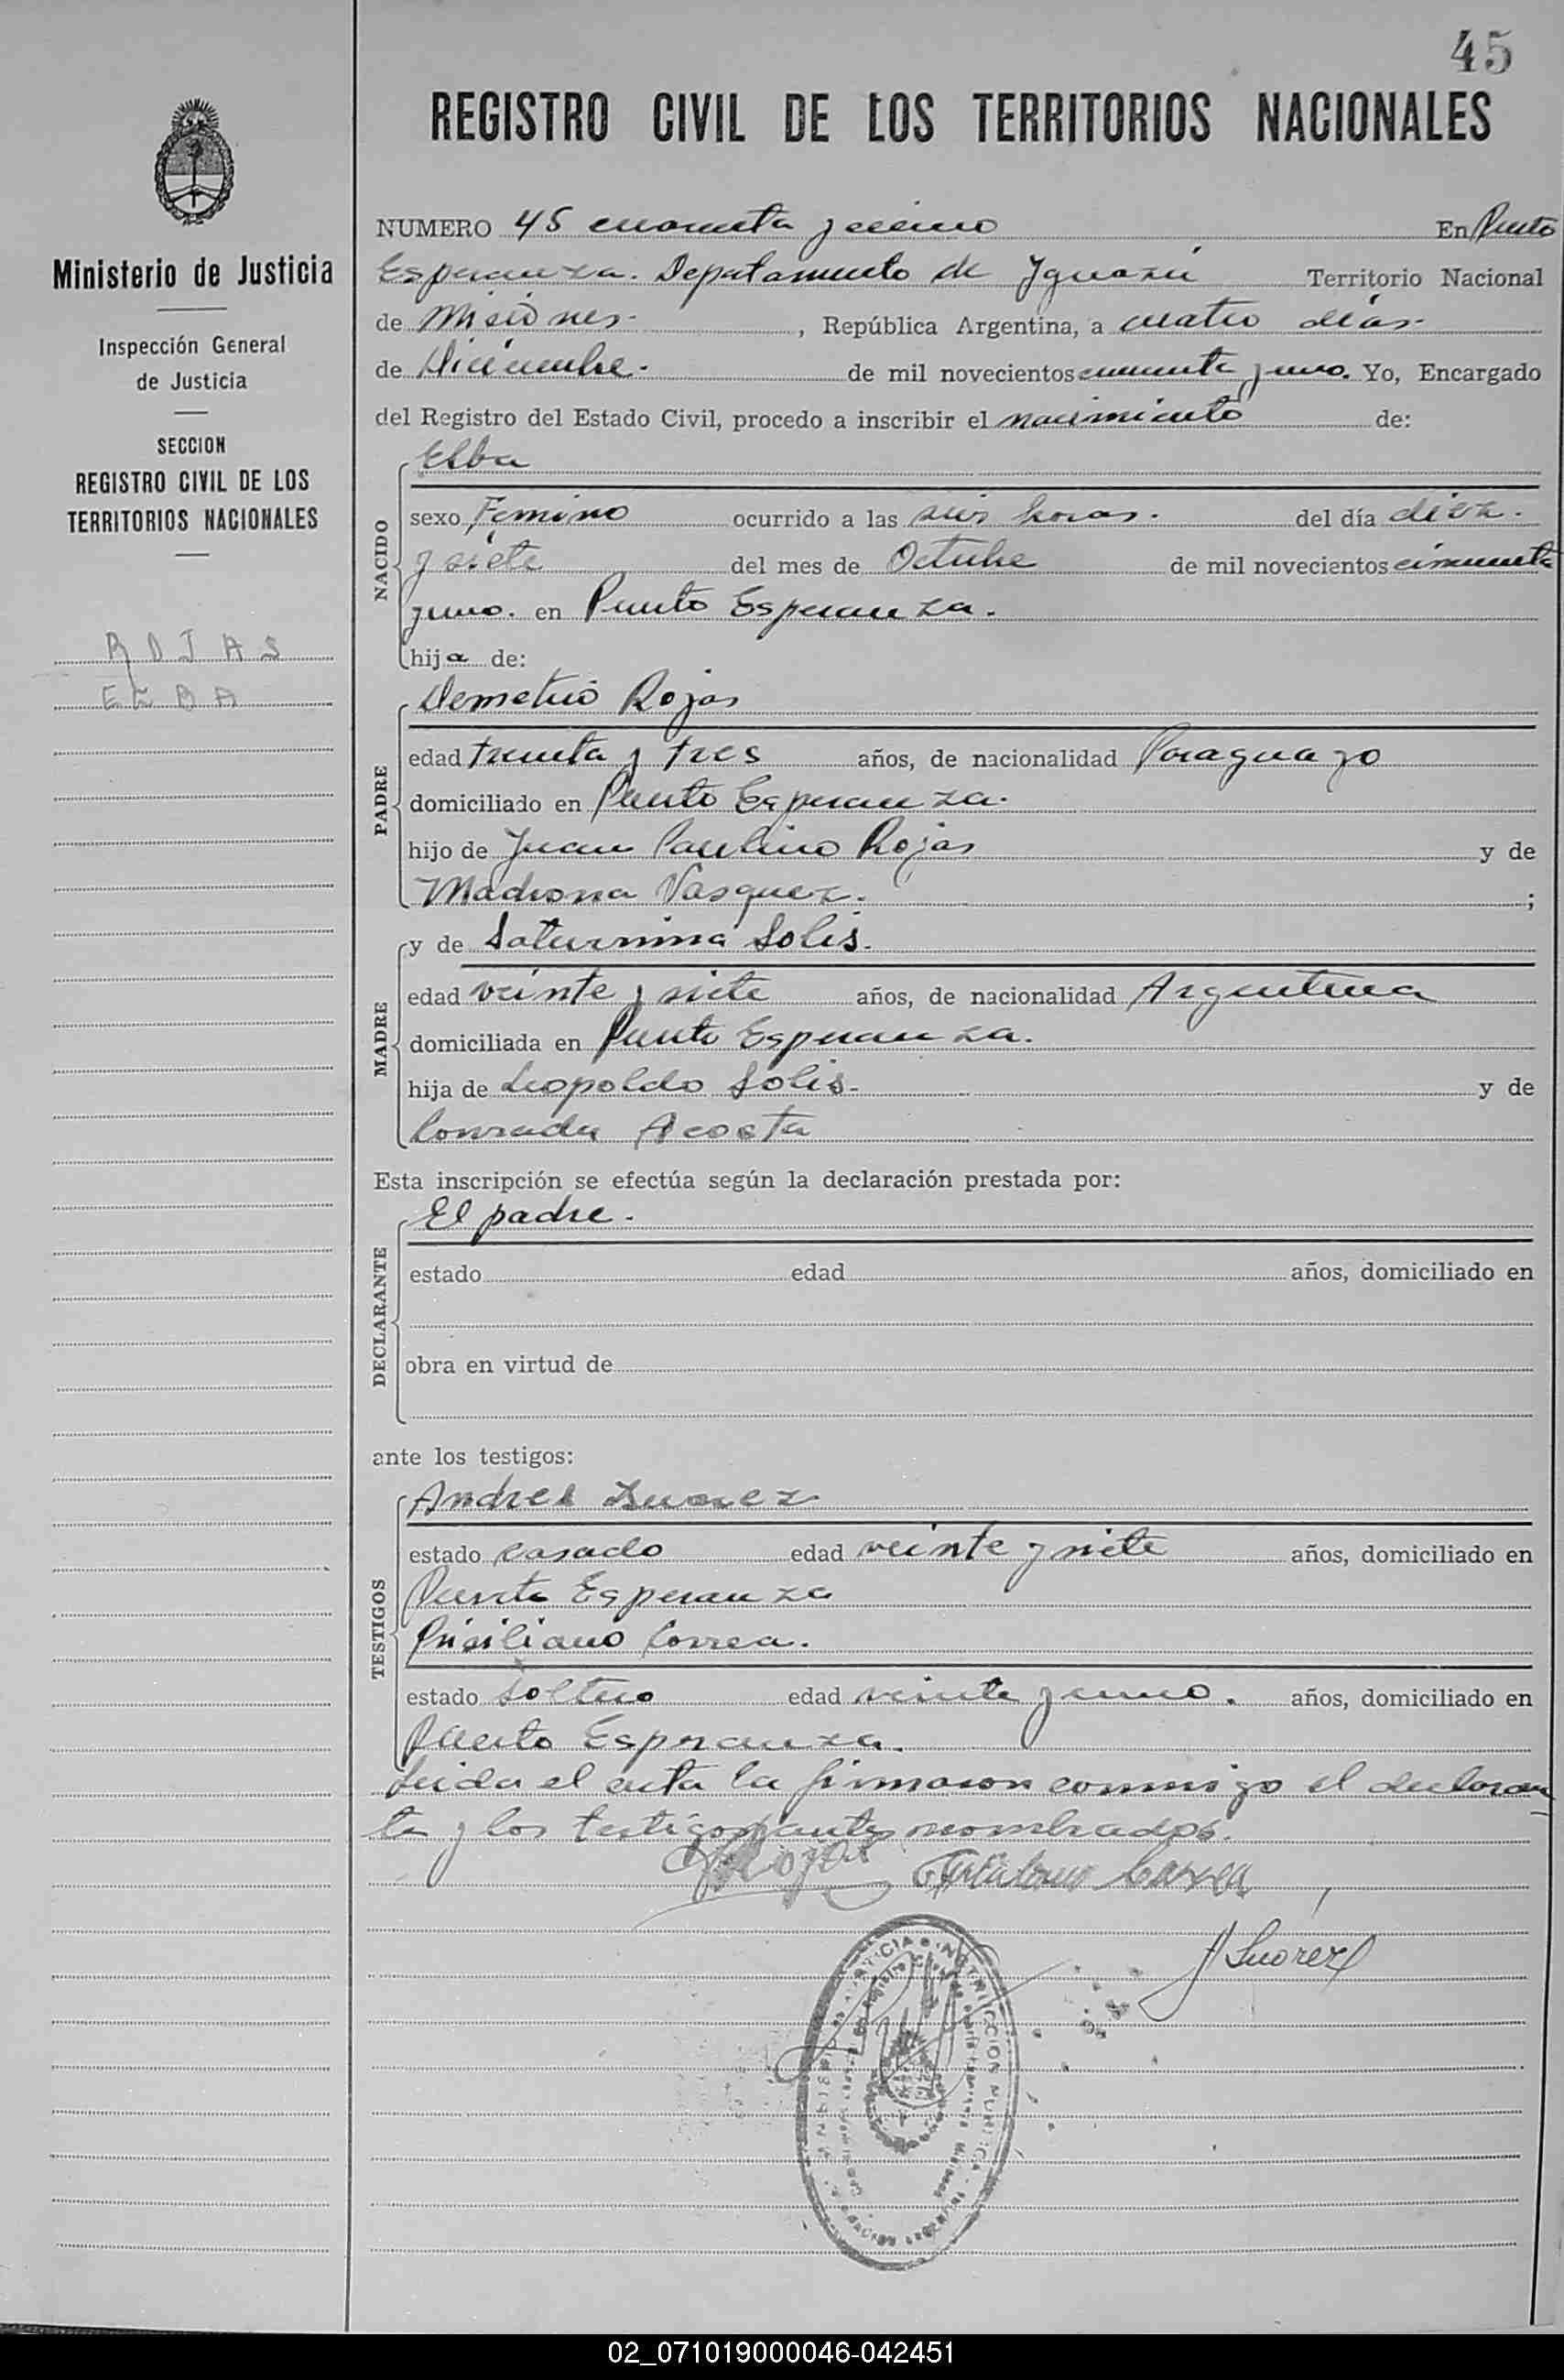 45
REGISTRO CIVIL DE LOS TERRITORIOS NACIONALES
Ministerio de Justicia
Inspección General
de Justicia
SECCION
REGISTRO CIVIL DE LOS
TERRITORIOS NACIONALES
ROJAS
ELBA
NUMERO 45 cuarenta y cinco En Puerto
Esperanza. Depatamento de Yguazú Territorio Nacional
de Misiones. , República Argentina, a cuatro días
de Diciembre. de mil novecientos cincuenta y uno. Yo, Encargado
del Registro del Estado Civil, procedo a inscribir el nacimiento de:
NACIDO
Elba
sexo Femino ocurrido a las seis horas. del día diez.
y siete del mes de Octubre de mil novecientos cincuenta
y uno. en Puerto Esperanza.
hija de:
PADRE
Demetrio Rojas
edad treinta y tres años, de nacionalidad Paraguayo
domiciliado en Puerto Esperanza.
hijo de Juan Paulino Rojas y de
Madrona Vasquez. ;
MADRE
y de Saturnina Solis.
edad veinte y siete años, de nacionalidad Argentina
domiciliada en Puerto Esperanza.
hija de Leopoldo Solis. y de
Conrada Acosta
Esta inscripción se efectúa según la declaración prestada por:
DECLARANTE
El padre.
estado edad años, domiciliado en
obra en virtud de
ante los testigos:
TESTIGOS
Andres Suarez
estado casado edad veinte y siete años, domiciliado en
Puerto Esperanza
Prisiliano Correa.
estado Soltero edad veinte y uno. años, domiciliado en
Puerto Esperanza.
Leida el acta la firmaron conmigo el declaran
te y los testigos antes nombrados.
DRojas Correa
A Suarez
02_071019000046-042451